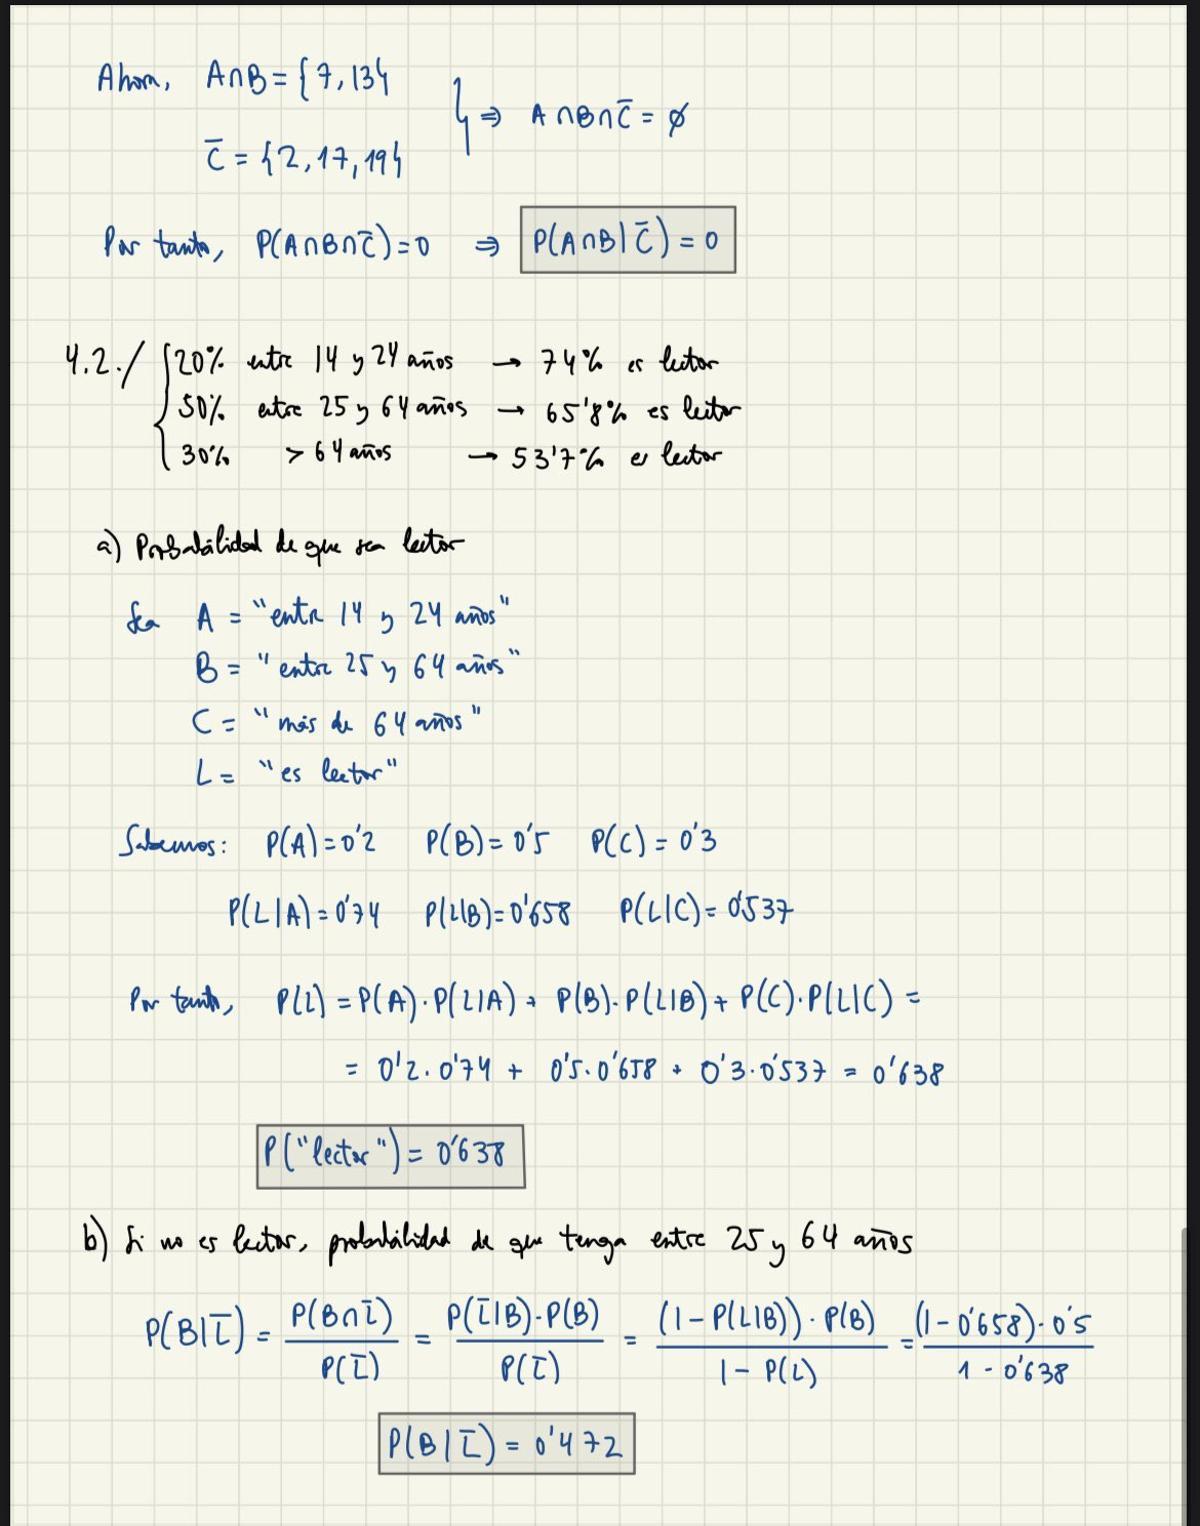 Ahora, A∩B = {7, 13}
⇒ A∩B∩C̅ = ∅
C̅ = {2, 17, 19}
Por tanto, P(A∩B∩C̅) = 0 ⇒ P(A∩B|C̅) = 0
4.2./ 20% entre 14 y 24 años → 74% es lector
50% entre 25 y 64 años → 65'8% es lector
30% > 64 años → 53'7% es lector
a) Probabilidad de que sea lector
Sea A = "entre 14 y 24 años"
B = "entre 25 y 64 años"
C = "más de 64 años"
L = "es lector"
Sabemos: P(A) = 0'2 P(B) = 0'5 P(C) = 0'3
P(L|A) = 0'74 P(L|B) = 0'658 P(L|C) = 0'537
Por tanto, P(L) = P(A)·P(L|A) + P(B)·P(L|B) + P(C)·P(L|C) =
= 0'2·0'74 + 0'5·0'658 + 0'3·0'537 = 0'638
P("lector") = 0'638
b) Si no es lector, probabilidad de que tenga entre 25 y 64 años
P(B|L̅) = P(B∩L̅)/P(L̅) = P(L̅|B)·P(B)/P(L̅) = (1-P(L|B))·P(B)/1-P(L) = (1-0'658)·0'5/1-0'638
P(B|L̅) = 0'472